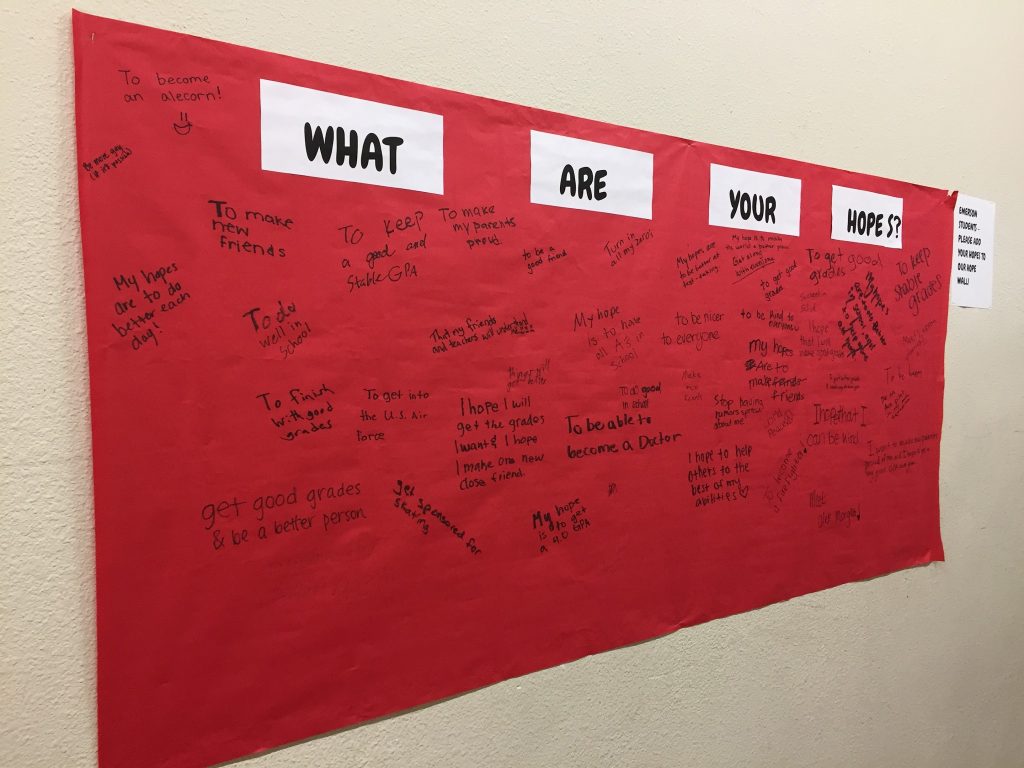 WHAT
ARE
YOUR
HOPES?
EMERSON
STUDENTS -
PLEASE ADD
YOUR HOPES TO
OUR HOPE
WALL!
To become
an alecorn!
Be more gay
(if it's possible)
My hopes
are to do
better each
day!
To make
new
friends
To keep
a good and
Stable GPA
To make
my parents
proud.
to be a
good friend
Turn in
all my zero's
To do
well in
school
That my friends
and teachers will understand
My hope
is to have
all A's in
school
to be nicer
to everyone
to get good
grades
to be kind to
everyone
To get good
grades
To keep
stable
grades
To finish
with good
grades
To get into
the U.S. Air
Force
things will
get better
I hope I will
get the grades
I want & I hope
I make one new
close friend.
To do good
in school
To be able to
become a Doctor
my hopes
Are to
make
friends
Stop having
rumors spread
about me
I hope that I
can be kind
To be happy
I hope to help
others to the
best of my
abilities
To become
a firefighter
get good grades
& be a better person
get sponsored for
skating
My hope
is to get
a 4.0 GPA